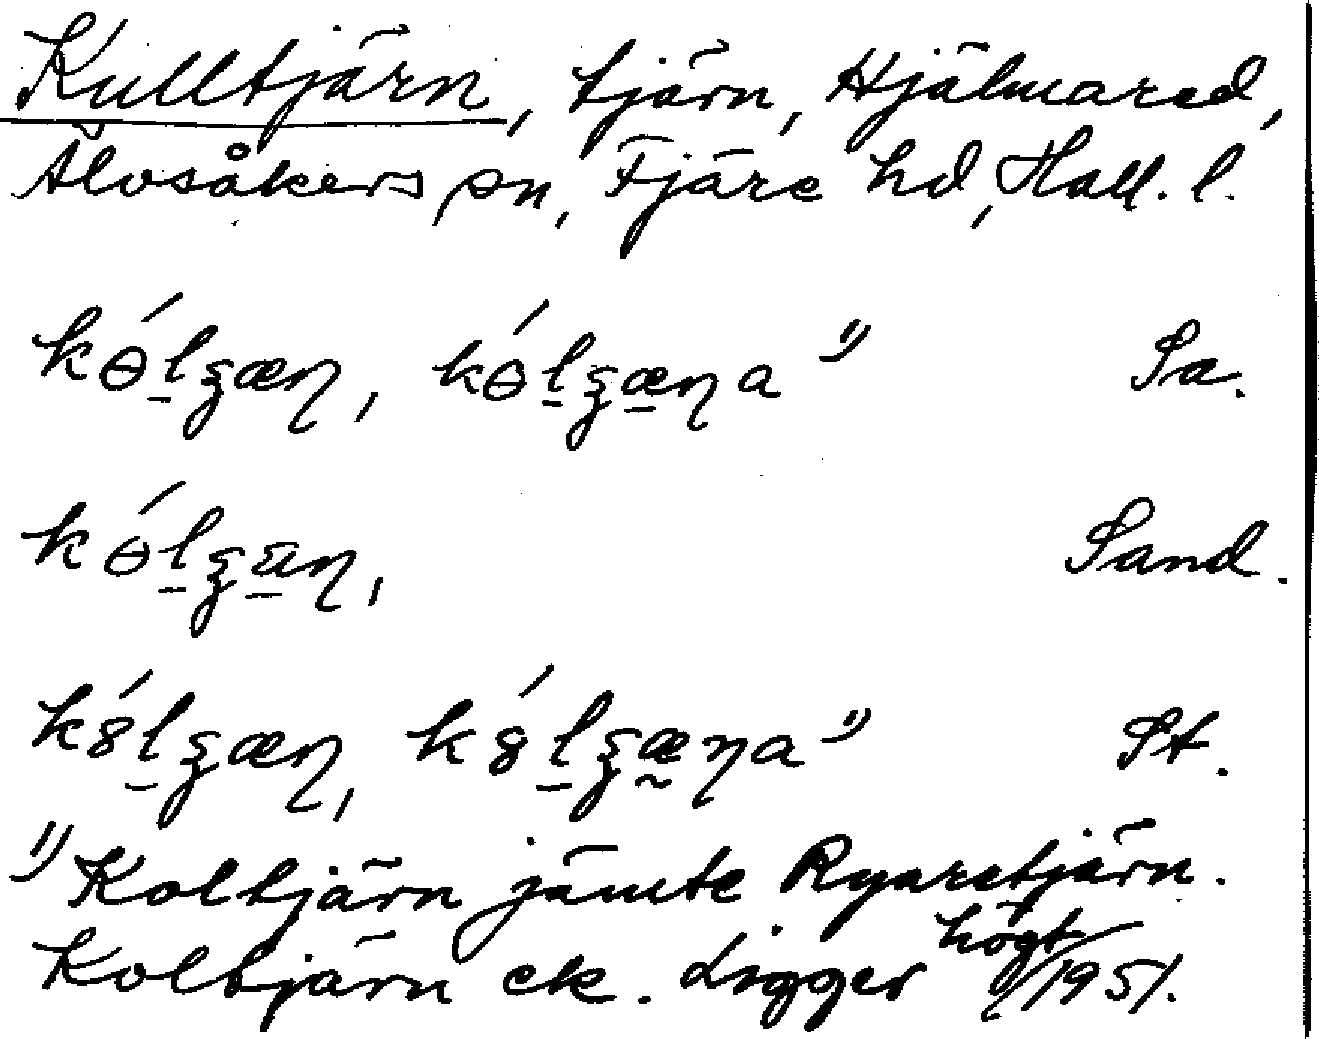 Kulltjärn, tjärn, Hjälmared,
Älvsåkers sn, Fjäre hd, Hall. l.
kɵ́lʒæn̡, kɵ́lʒæn̡a ¹⁾ Sa.
kɵ́lʒän̡, Sand.
k8́lʒæn̡, k8́lʒæn̡a ¹⁾ St.
¹⁾ Koltjärn jämte Ryaretjärn.
Koltjärn ek. Ligger högt /1951.